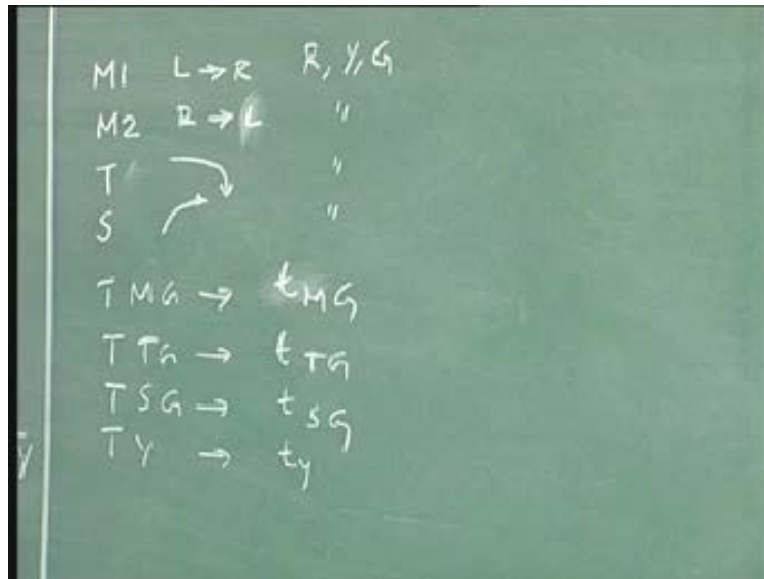 M1 L → R R, Y, G
M2 R → L "
T "
S "
TMG → tMG
TTG → tTG
TSG → tSG
TY → ty